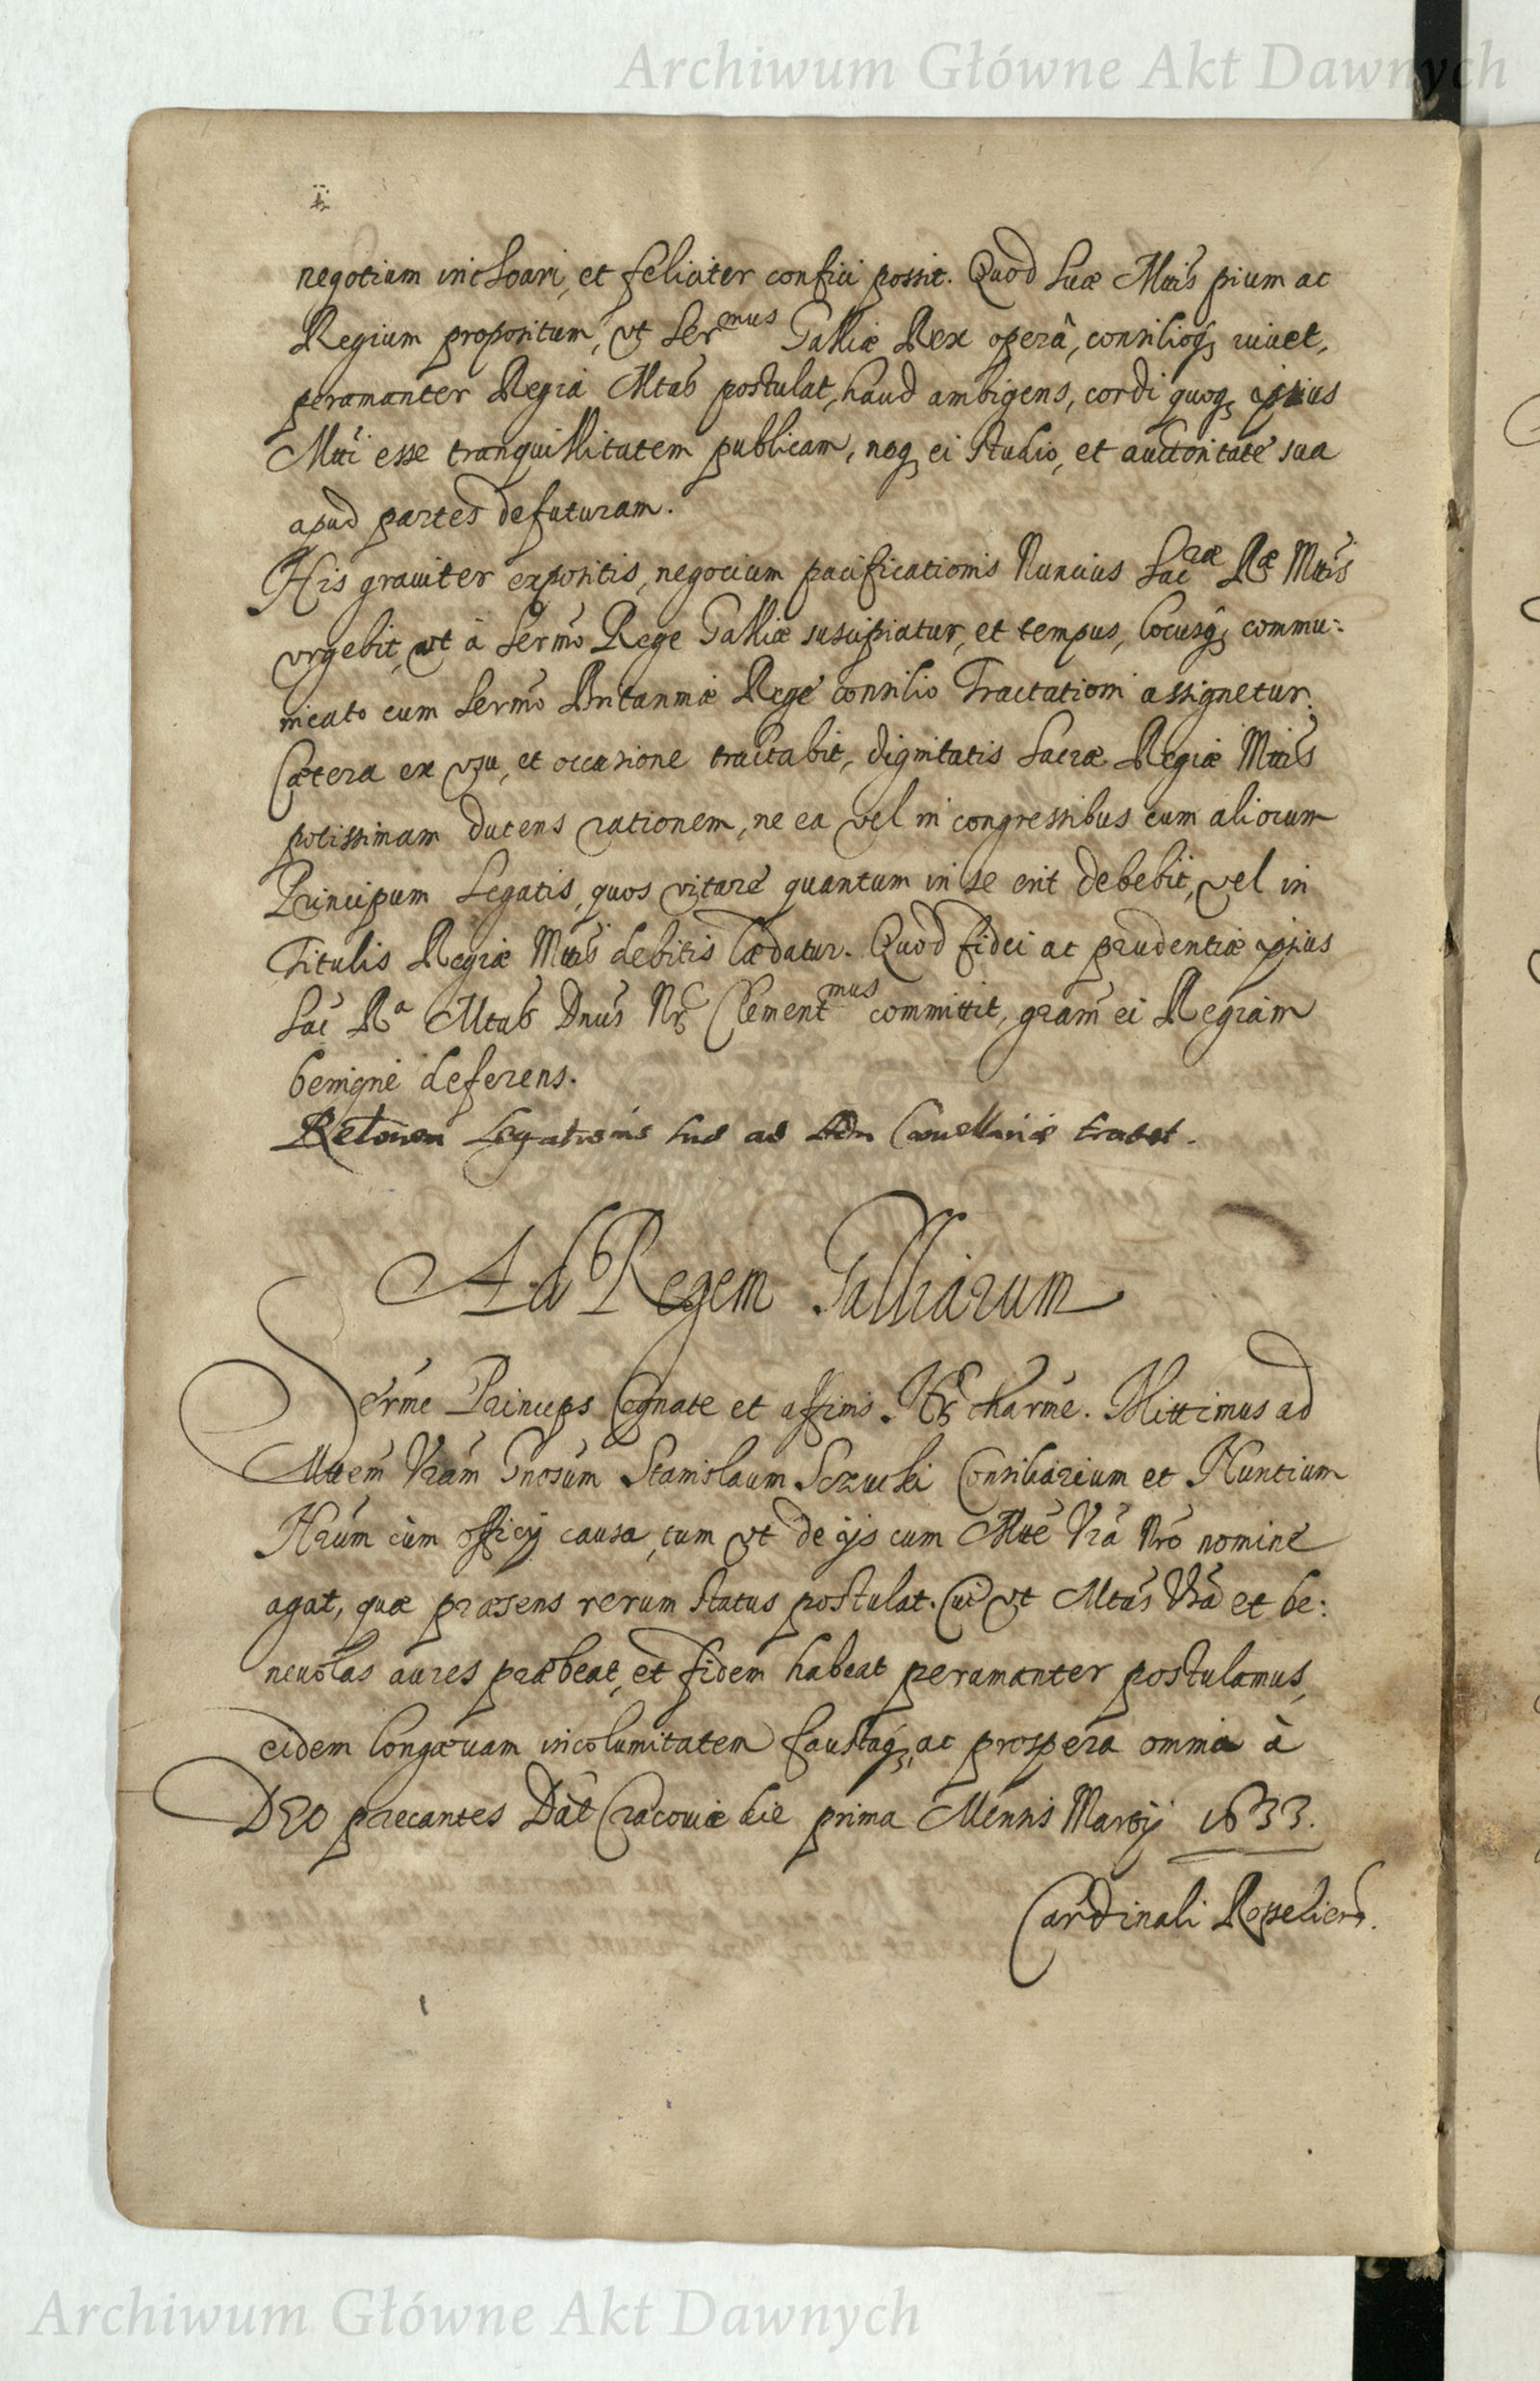 Archiwum Główne Akt Dawnych
negotium inchoari, et feliciter confici possit. Quod suæ Mttis pium ac
Regium propositum, vt Sermus Galliæ Rex operâ, consilioq; iuuet,
peramanter Regia Mtas postulat, haud ambigens, cordi quoq; ipsius
Mtti esse tranquillitatem publicam, neq; ei studio, et auctoritate sua
apud partes defuturam.
His grauiter expositis, negocium pacificationis Nuncius Sacræ Ræ Mttis
vrgebit, vt à Sermo Rege Galliæ suscipiatur, et tempus, locusq; commu:
nicato cum Sermo Britanniæ Rege consilio Tractationi assignetur.
Cætera ex vsu, et occasione tractabit, dignitatis Sacræ Regiæ Mttis
potissimam ducens rationem, ne ea vel in congressibus cum aliorum
Principum Legatis, quos vitare quantum in se erit debebit, vel in
Titulis Regiæ Mttis debitis lædatur. Quod fidei ac prudentiæ ipsius
Sac Ra Mtas Dnus Nr Clementmus committit, gram ei Regiam
benigne deferens.
Legationis suæ ad Cancellariæ
Ad Regem Galliarum
Serme Princeps Cognate et affinis Nr charme. Mittimus ad
Mttem Vram Gnosum Stanislaum Sczucki Consiliarium et Nuntium
Nrum cùm officij causa, tum vt de ijs cum Mtte Vra Nro nomine
agat, quæ præsens rerum status postulat. Cui vt Mtas Vra et be:
neuolas aures præbeat, et fidem habeat peramanter postulamus,
eidem longæuam incolumitatem faustaq; ac prospera omnia à
DEO precantes Dat Cracouiæ die prima Mensis Martij 1633.
Cardinali Rosseliers.
Archiwum Główne Akt Dawnych